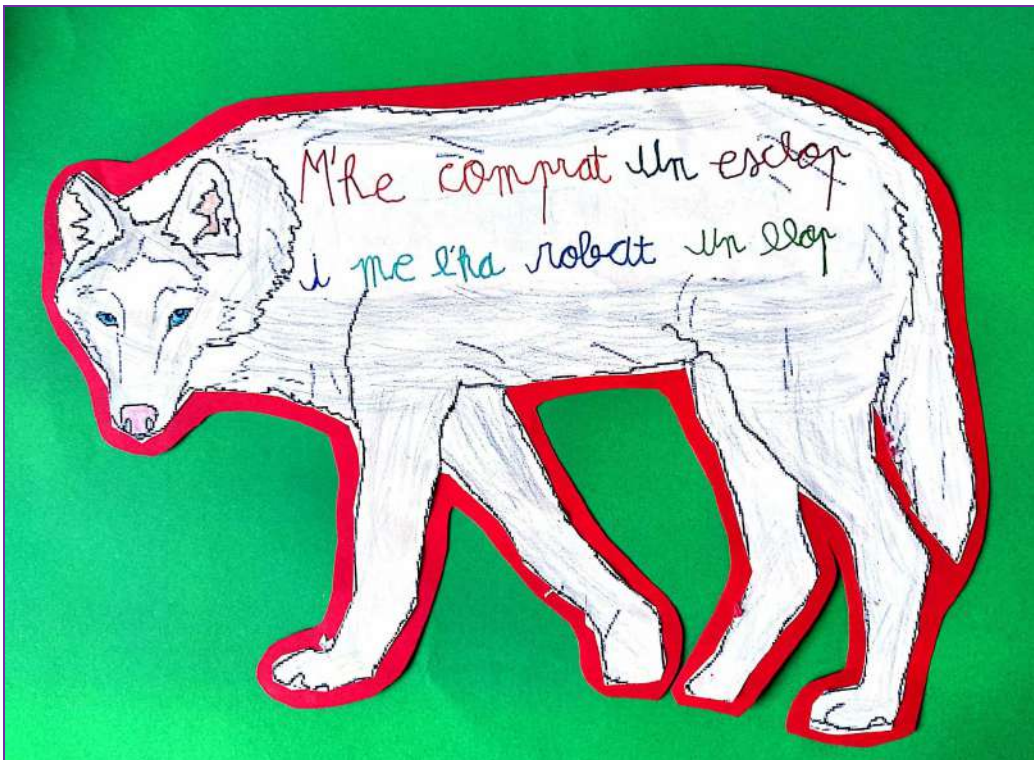 M'he comprat un esclop
i me l'ha robat un llop